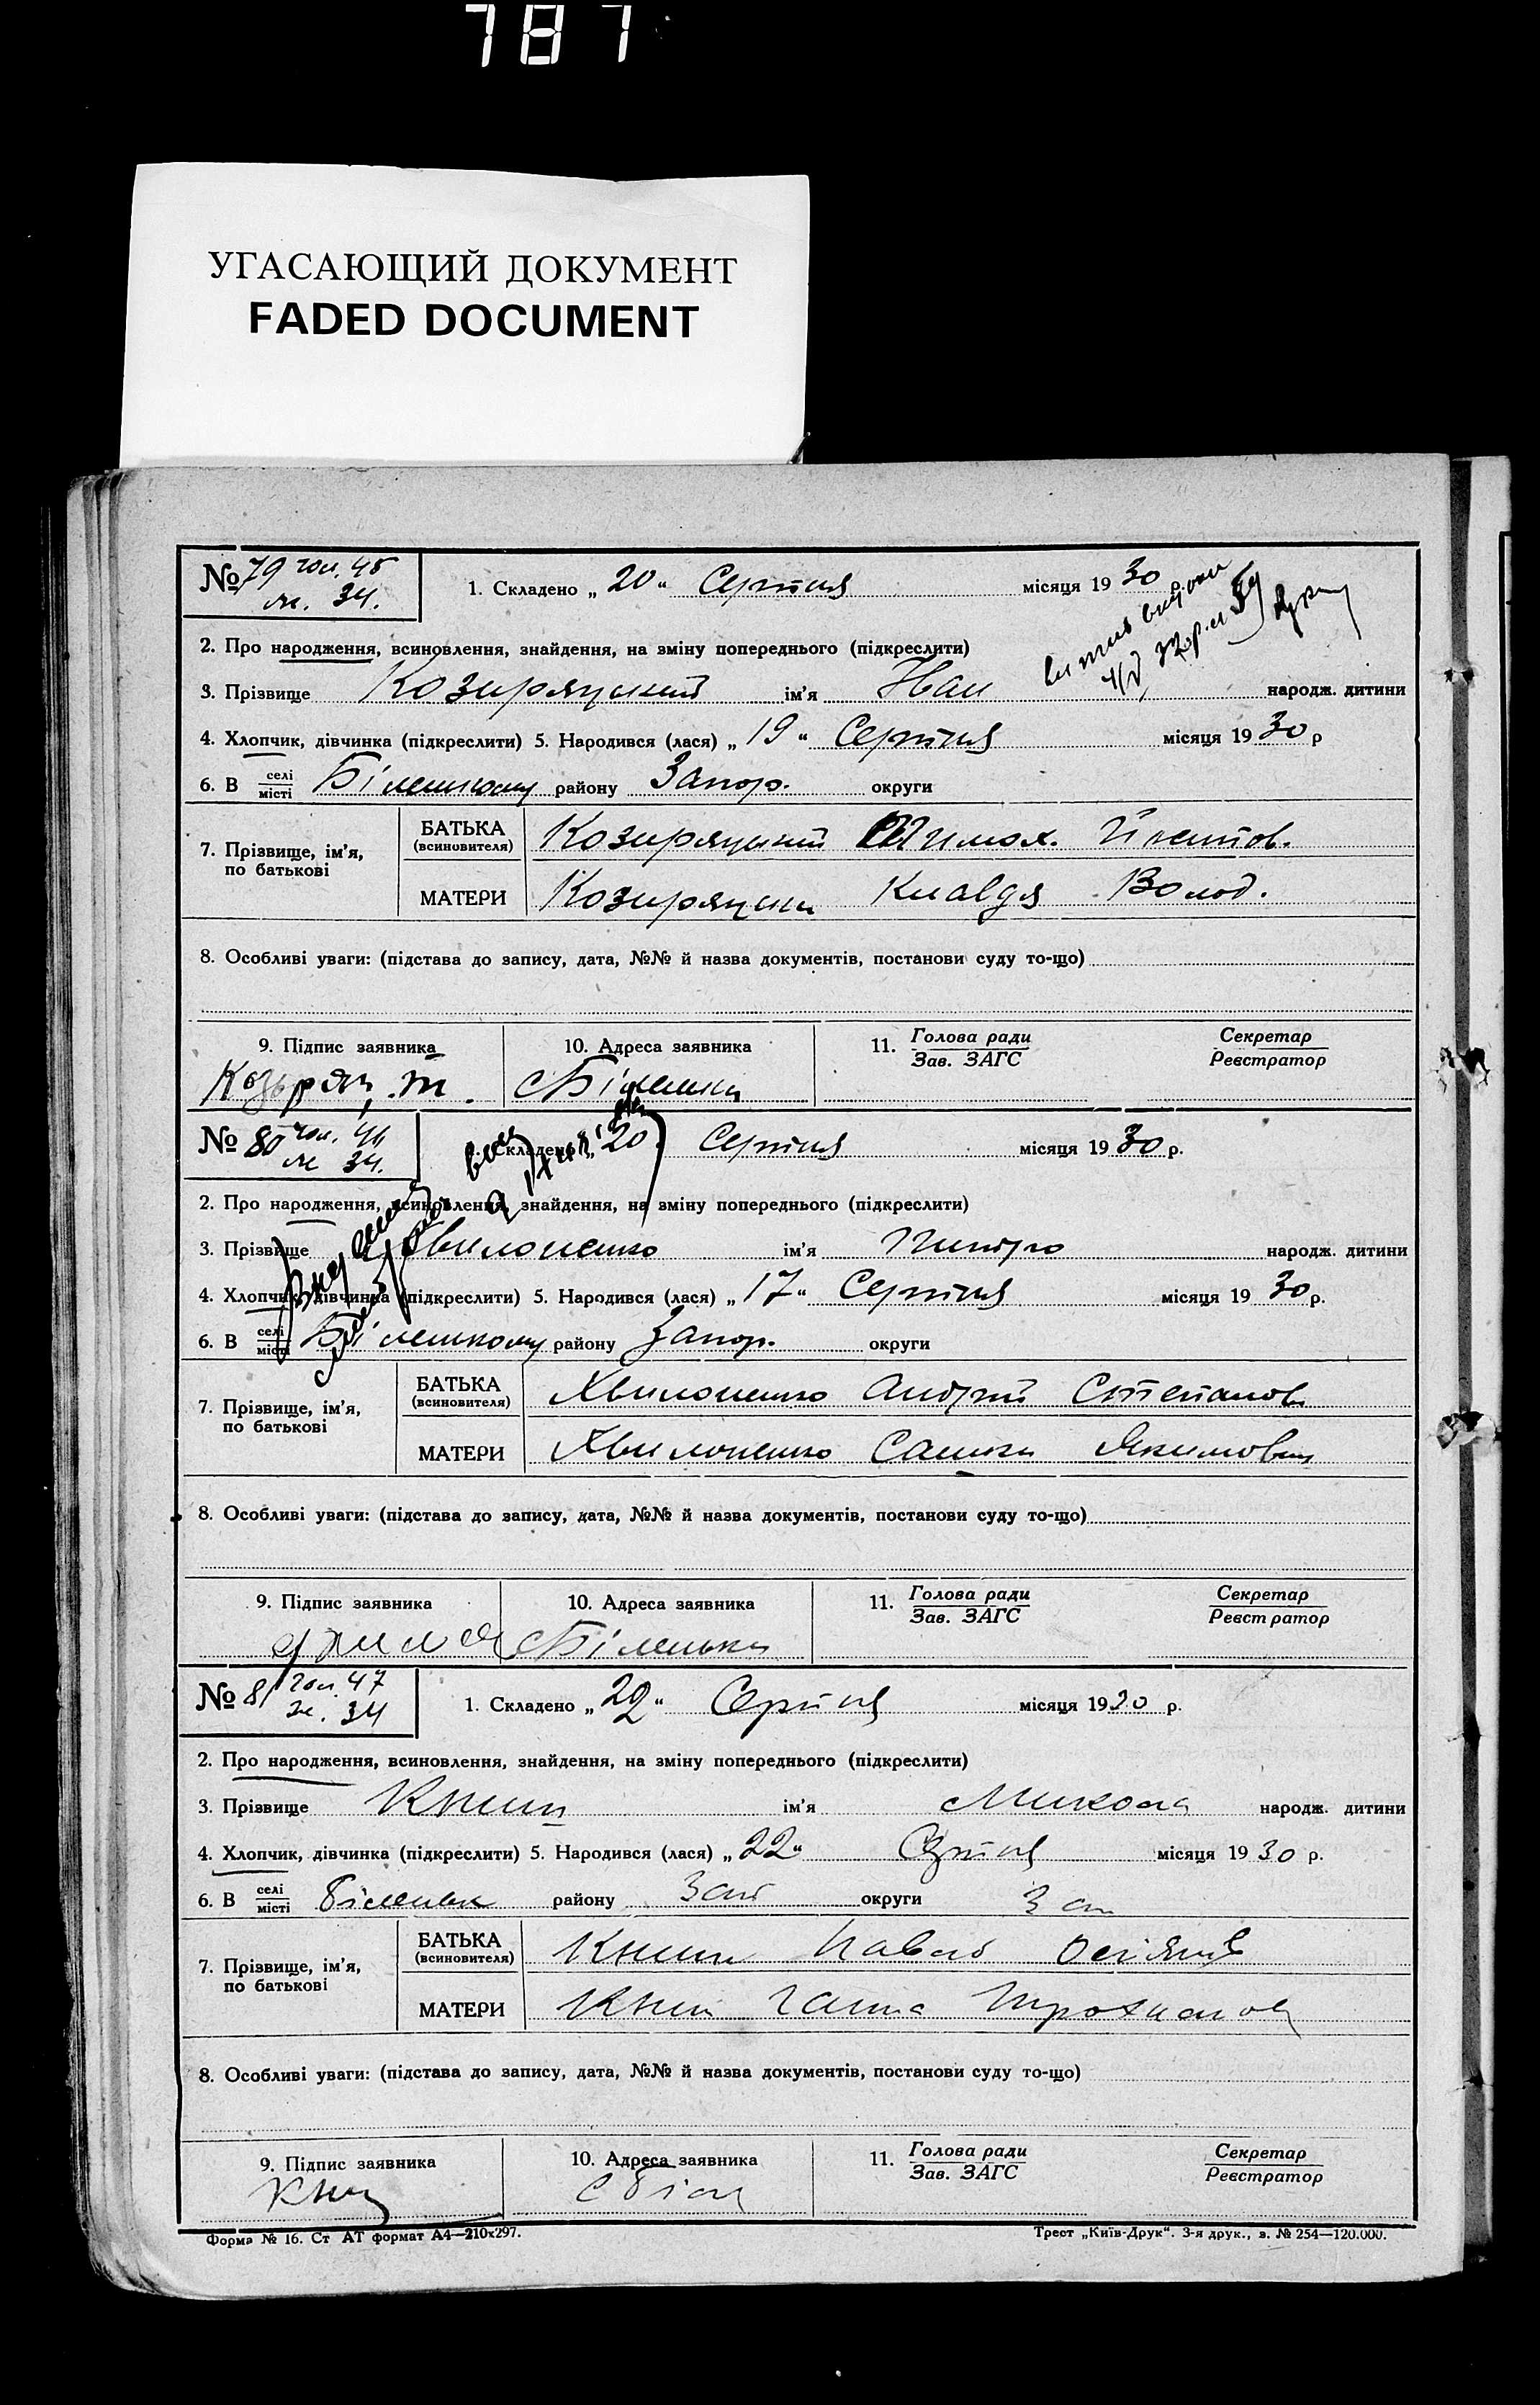 787
УГАСАЮЩИЙ ДОКУМЕНТ
FADED DOCUMENT
№ 79 чол. 45
ж. 34.
1. Складено „ 20 “ Серпня місяця 1930 р.
2. Про народження, всиновлення, знайдення, на зміну попереднього (підкреслити)
3. Прізвище Козиряцький ім'я Іван народж. дитини
4. Хлопчик, дівчинка (підкреслити) 5. Народився (лася) „ 19 “ Серпня місяця 1930 р
6. В селі/місті Біленькому району Запор. округи
7. Прізвище, ім'я, по батькові
БАТЬКА (всиновителя) Козиряцький Тимох.
МАТЕРИ Козиряцька Клавдя Волод.
8. Особливі уваги: (підстава до запису, дата, №№ й назва документів, постанови суду то-що)
9. Підпис заявника 10. Адреса заявника 11. Голова ради/Зав. ЗАГС Секретар/Реєстратор
Козыряц. т. с Біленька
№ 80 чол. 46
ж 34.
1. Складено „ 20 “ Серпня місяця 1930 р.
2. Про народження, всиновлення, знайдення, на зміну попереднього (підкреслити)
3. Прізвище Хвилоненко ім'я Пиндро народж. дитини
4. Хлопчик, дівчинка (підкреслити) 5. Народився (лася) „ 17 “ Серпня місяця 1930 р.
6. В селі/місті Біленькому району Запор. округи
7. Прізвище, ім'я, по батькові
БАТЬКА (всиновителя) Хвилоненко Андрій Степанов.
МАТЕРИ Хвилоненко Сашка Якимовна
8. Особливі уваги: (підстава до запису, дата, №№ й назва документів, постанови суду то-що)
9. Підпис заявника 10. Адреса заявника 11. Голова ради/Зав. ЗАГС Секретар/Реєстратор
с Біленька
№ 81 чол. 47
ж. 34
1. Складено „ 22 “ Серпня місяця 1930 р.
2. Про народження, всиновлення, знайдення, на зміну попереднього (підкреслити)
3. Прізвище Книш ім'я Микола народж. дитини
4. Хлопчик, дівчинка (підкреслити) 5. Народився (лася) „ 22 “ Серпня місяця 1930 р.
6. В селі/місті Біленьк району Зап округи Зап
7. Прізвище, ім'я, по батькові
БАТЬКА (всиновителя) Книш Павло
МАТЕРИ Книш Ганна Трохимов
8. Особливі уваги: (підстава до запису, дата, №№ й назва документів, постанови суду то-що)
9. Підпис заявника 10. Адреса заявника 11. Голова ради/Зав. ЗАГС Секретар/Реєстратор
Книш с Біл
Форма № 16. Ст АТ формат А4—210х297.
Трест „Київ-Друк“. 3-я друк., з. № 254—120.000.